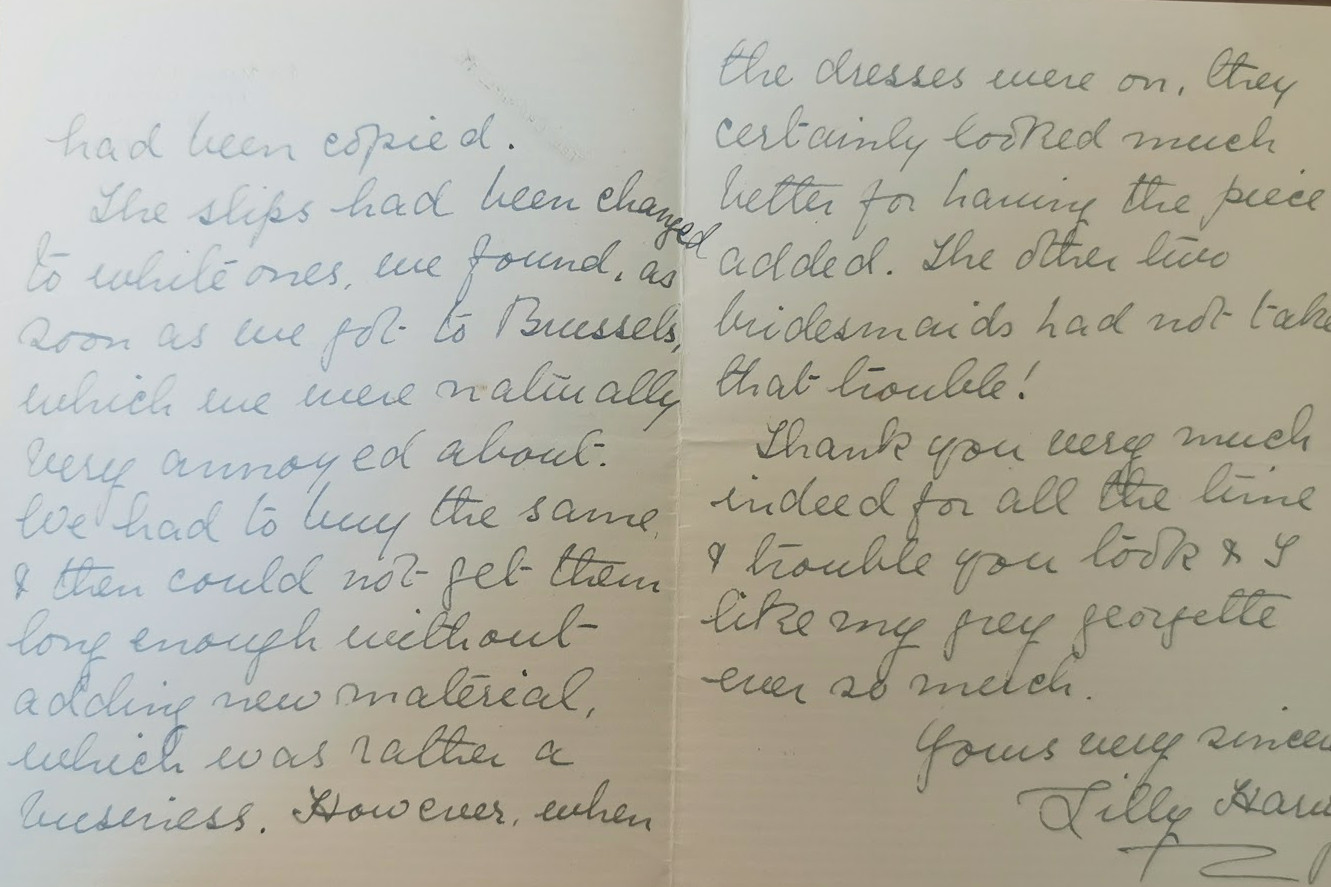 had been copied.
The slips had been changed
to white ones, we found, as
soon as we got to Brussels,
which we were naturally
very annoyed about.
We had to buy the same
& then could not get them
long enough without
adding new material,
which was rather a
business. However, when
the dresses were on, they
certainly looked much
better for having the piece
added. The other two
bridesmaids had not take
that trouble!
Thank you very much
indeed for all the time
& trouble you took & I
like my grey georgette
ever so much.
Yours very sincer
Lilly